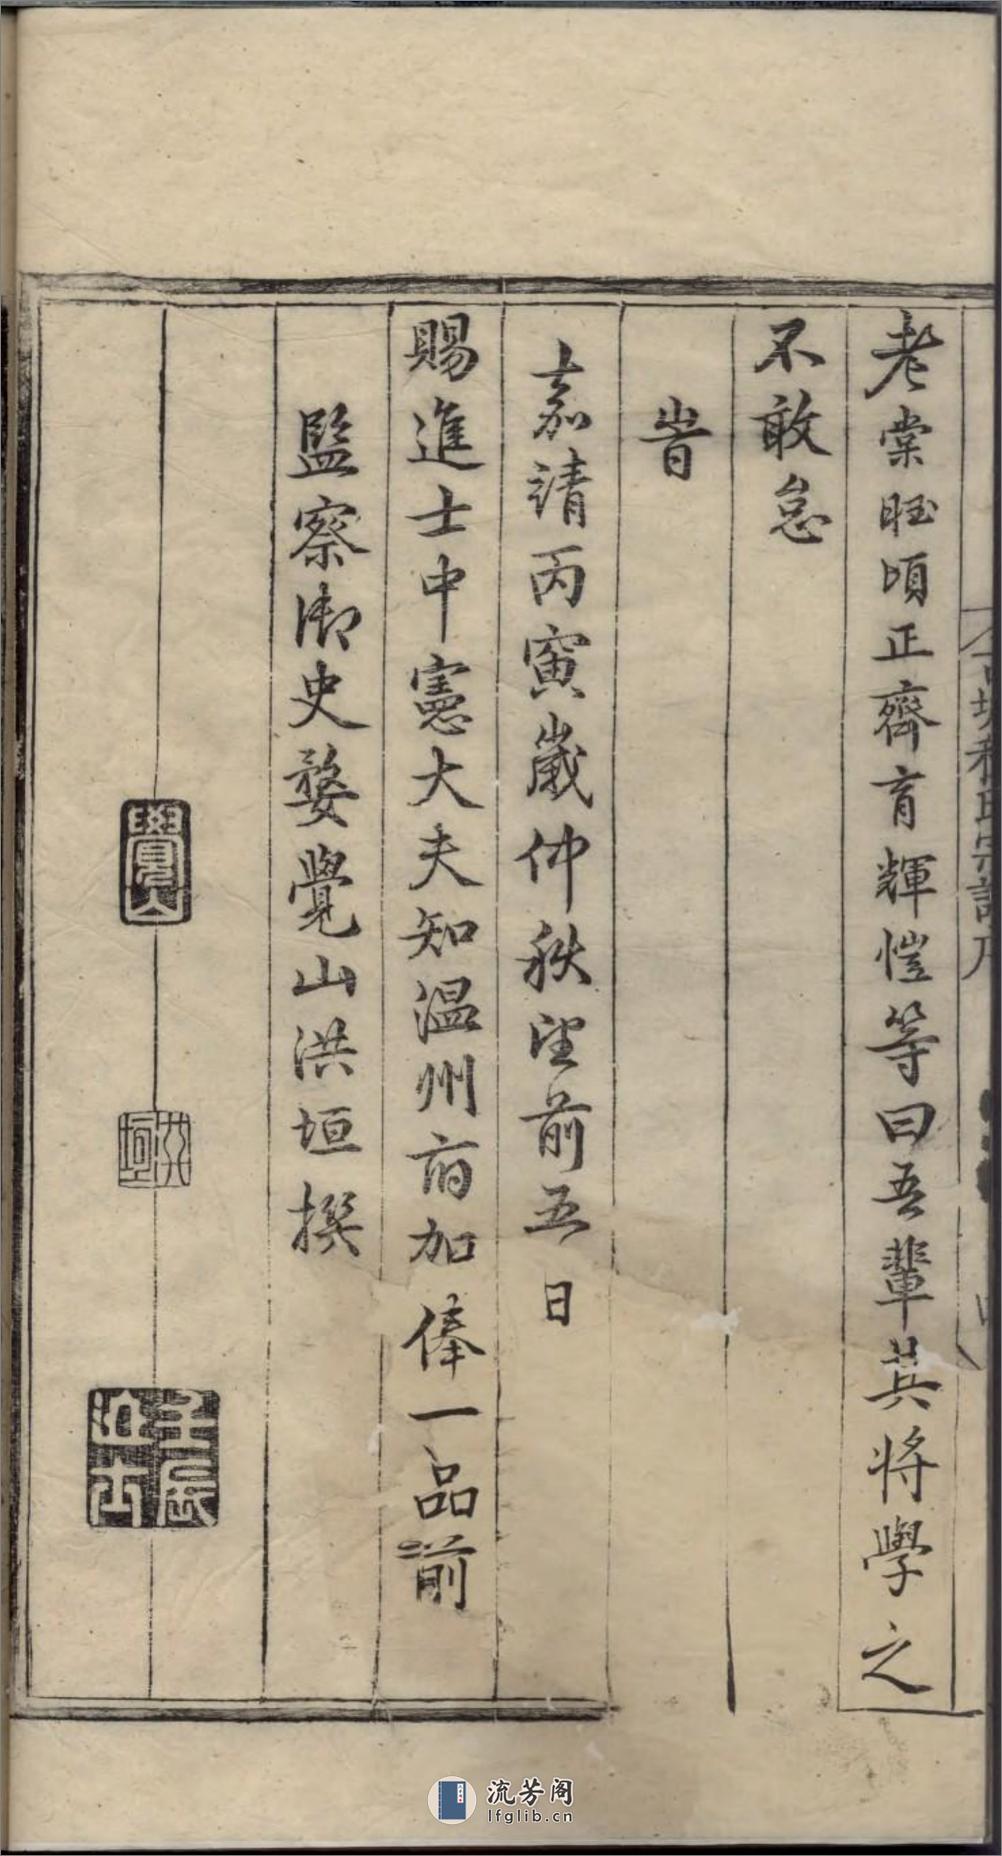 老棠旺頃正齊育輝愷等曰吾輩其將學之
不敢怠
旹
嘉靖丙寅歲仲秋望前五日
賜進士中憲大夫知温州府加俸一品前
監察御史婺覺山洪垣撰
覺山
洪垣
壬辰進士
流芳阁
lfglib.cn